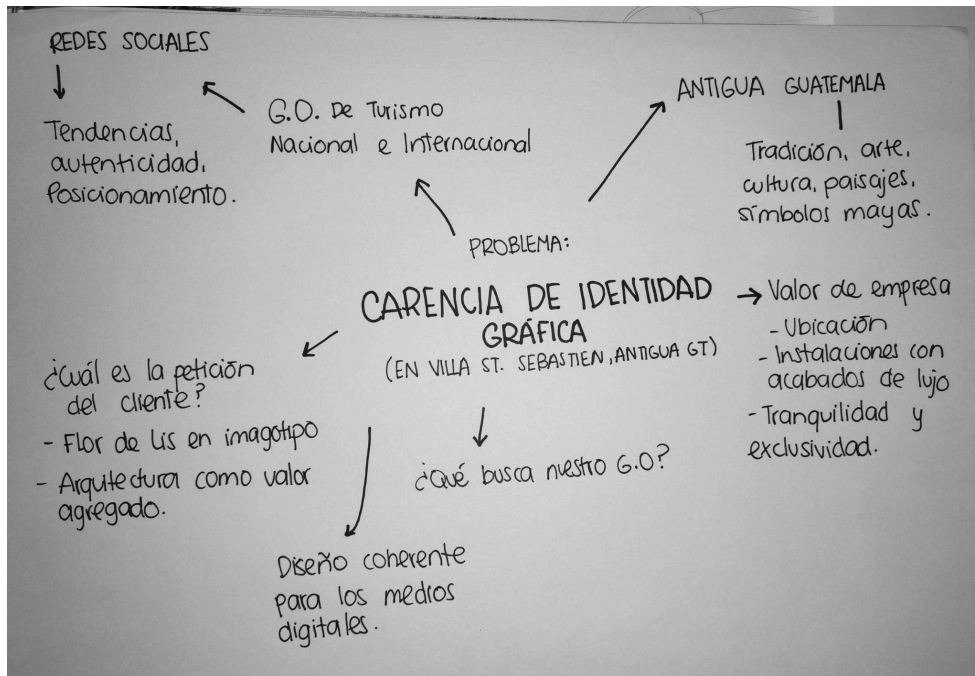 REDES SOCIALES
Tendencias,
autenticidad,
Posicionamiento.
G.O. De Turismo
Nacional e Internacional
ANTIGUA GUATEMALA
Tradición, arte,
cultura, paisajes,
símbolos mayas.
PROBLEMA:
CARENCIA DE IDENTIDAD
GRÁFICA
(EN VILLA ST. SEBASTIEN, ANTIGUA GT)
Valor de empresa
- Ubicación
- Instalaciones con
acabados de lujo
- Tranquilidad y
exclusividad.
¿Cuál es la petición
del cliente?
- Flor de Lis en imagotipo
- Arquitectura como valor
agregado.
¿Qué busca nuestro G.O?
Diseño coherente
para los medios
digitales.